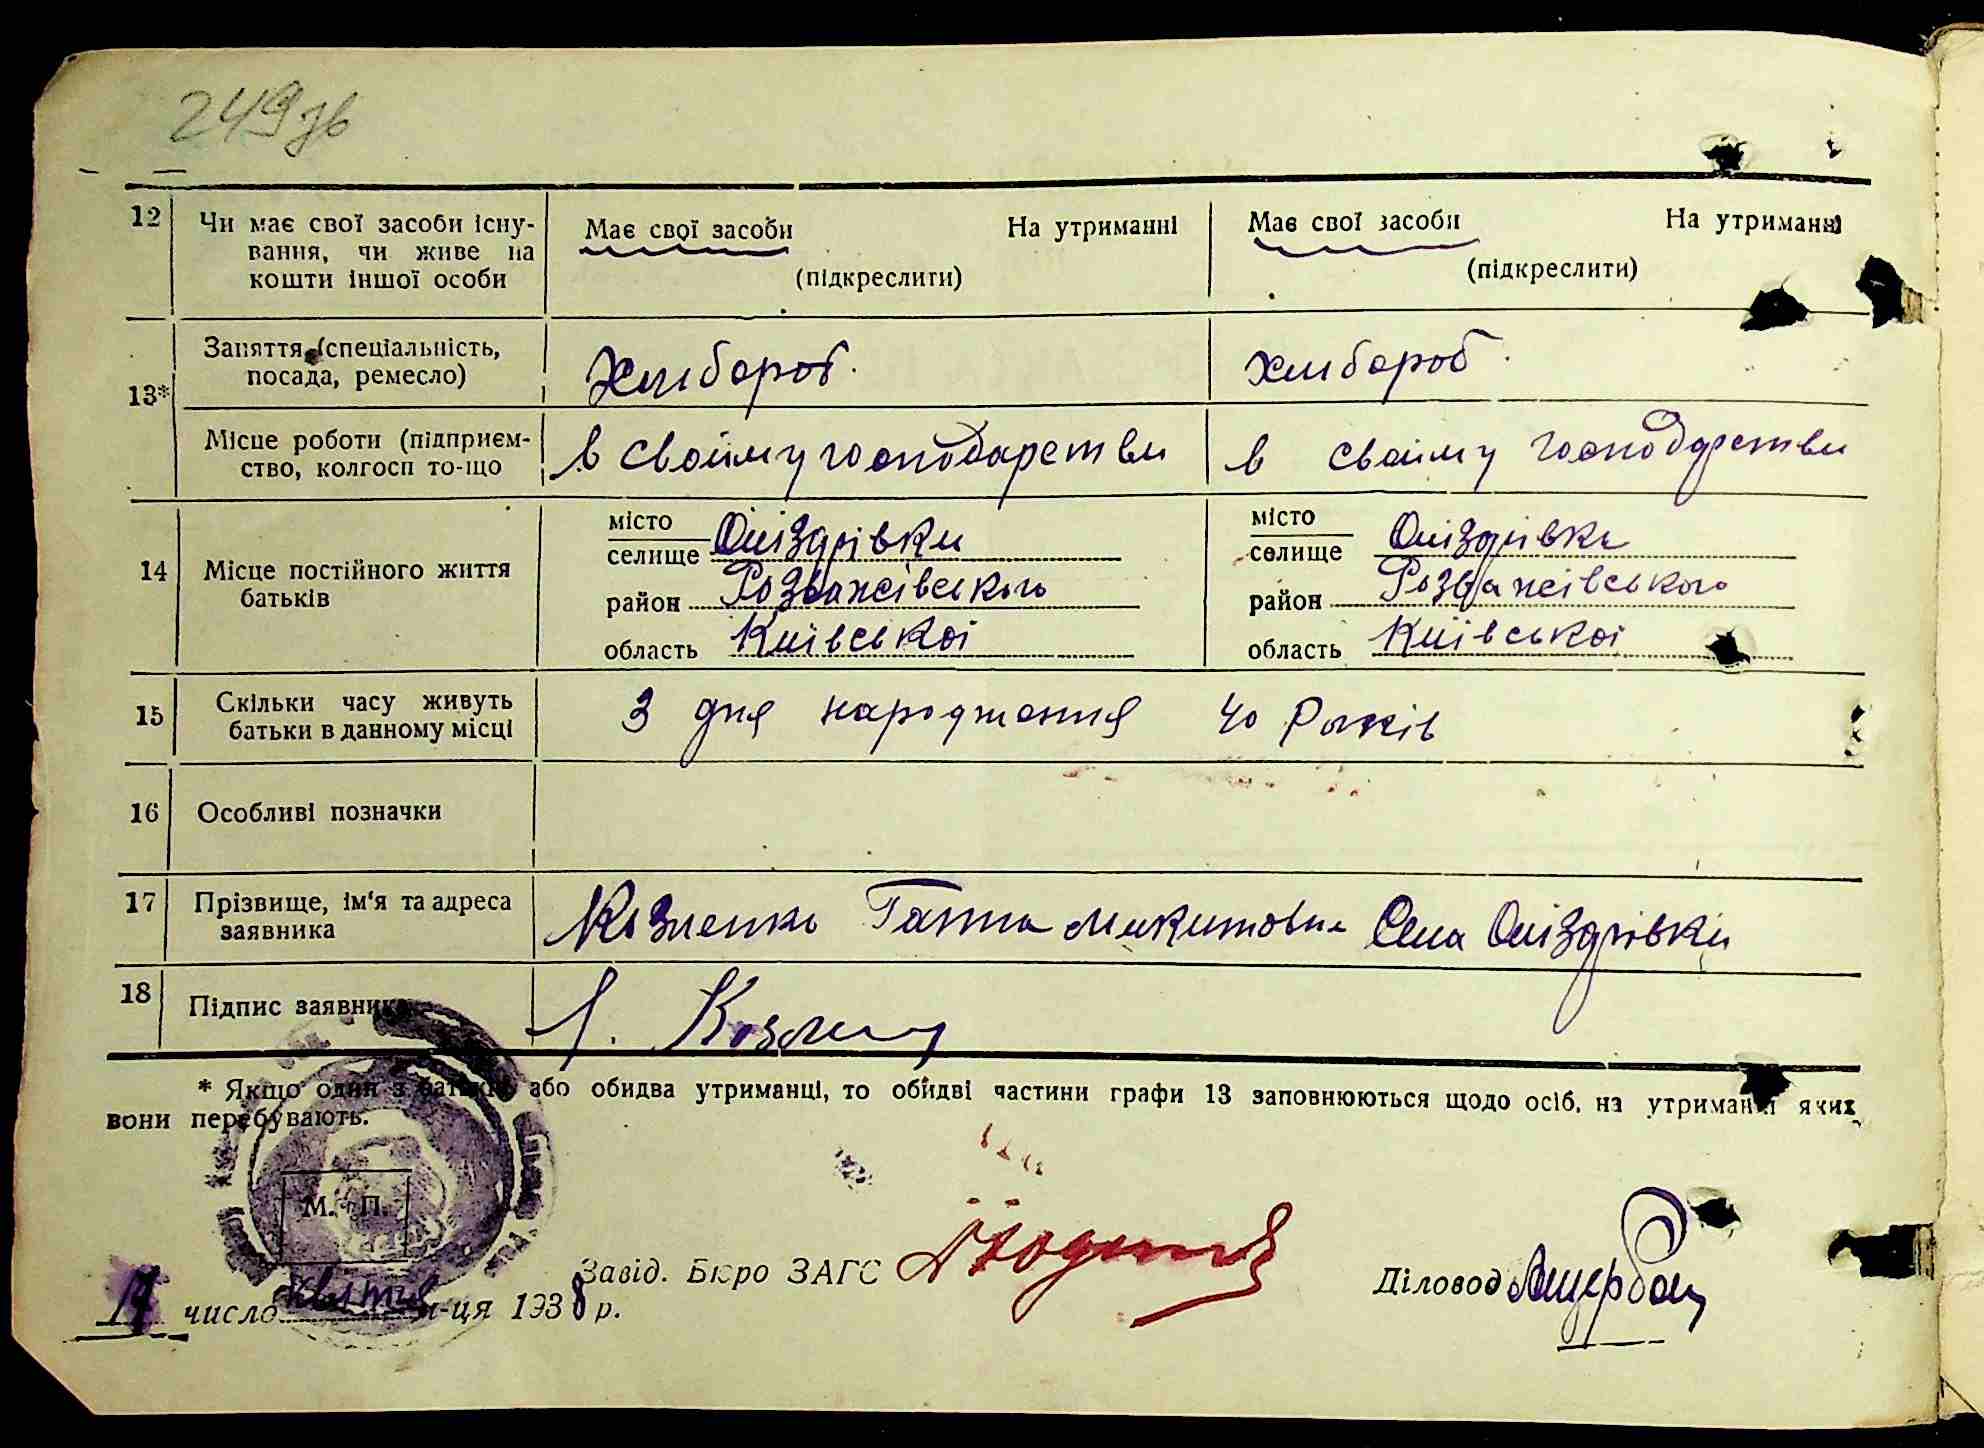 249зв
12 Чи має свої засоби існу- Має свої засоби На утриманні Має свої засоби На утриманні
вання, чи живе на
кошти іншої особи (підкреслити) (підкреслити)
Заняття (спеціальність, Хлибороб. Хлибороб.
посада, ремесло)
13*
Місце роботи (підприєм- в своїму господарстви в своїму господарстви
ство, колгосп то-що
14 Місце постійного життя батьків
місто селище Оліздрівки місто селище Оліздрівки
район Розважівського район Розважівського
область Київської область Київської
15 Скільки часу живуть З дня народження 40 Рыків
батьки в данному місці
16 Особливі позначки
17 Прізвище, ім'я та адреса Козленко Ганна Микитовна Села Оліздрівки
заявника
18 Підпис заявника Г. Козлен
* Якщо один з батьків або обидва утриманці, то обидві частини графи 13 заповнюються щодо осіб, на утриманні яких
вони перебувають.
М. П.
Завід. Бюро ЗАГС Діловод
число квітня м-ця 1938 р.